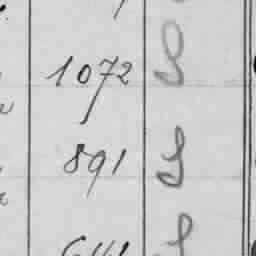 1072 S
891 S